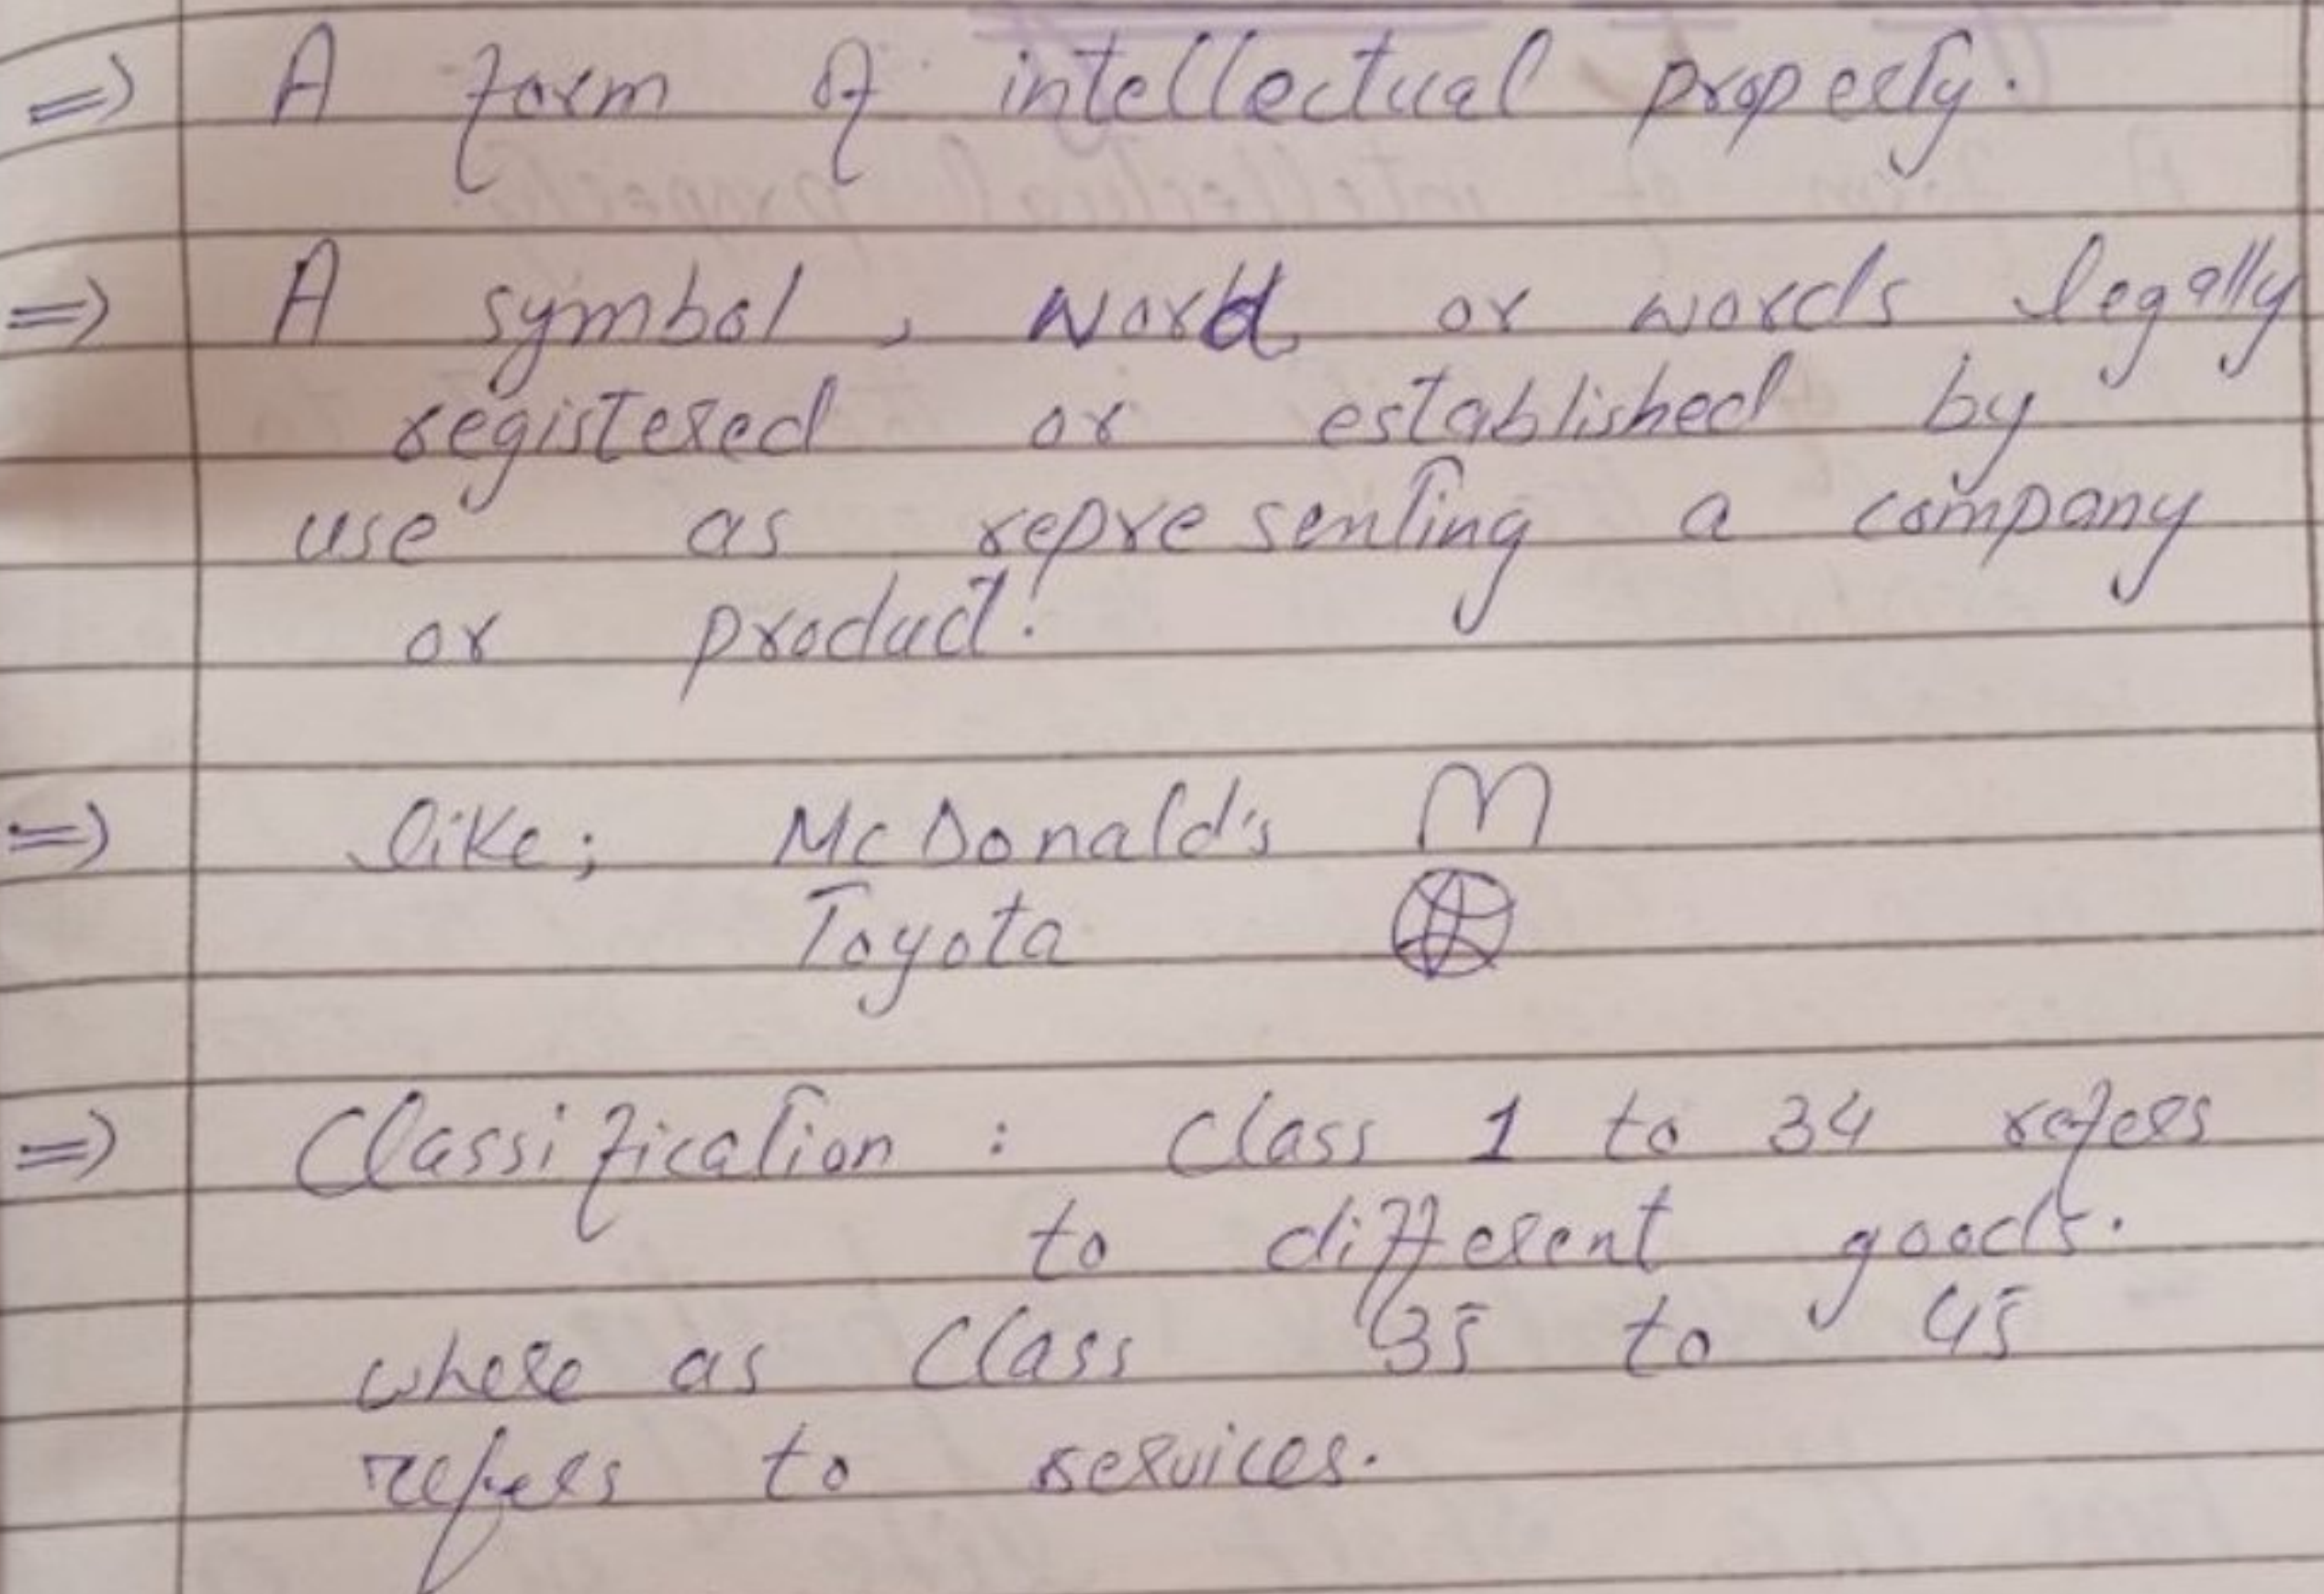 ⇒ A form of intellectual property.
⇒ A symbol, word or words legally
registered or established by
use as representing a company
or product.
⇒ like; McDonald's M
Toyota
⇒ Classification : Class 1 to 34 refers
to different goods.
where as Class 35 to 45
refers to services.